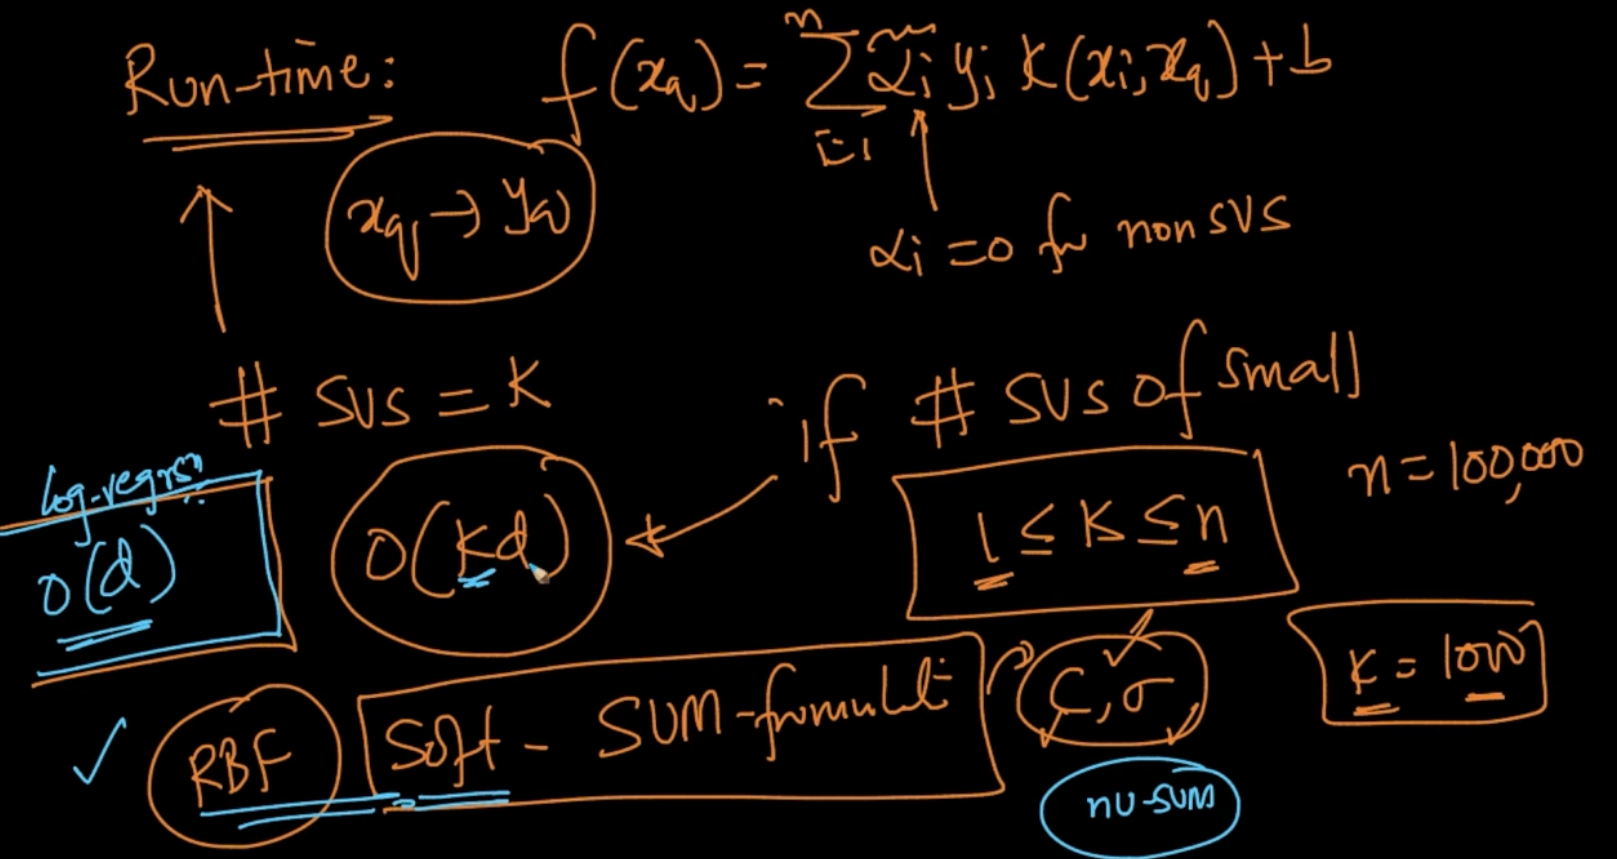 Run-time: f(xq) = n Σ i=1 αi yi K(xi, xq) + b
xq → yq
αi = 0 for non SVS
# SVS = K
if # SVS of small
log-regrsn
O(d)
O(Kd)
1 ≤ K ≤ n
n = 100,000
K = 1000
RBF
Soft - SVM - fromulati
C, σ
nu-SVM